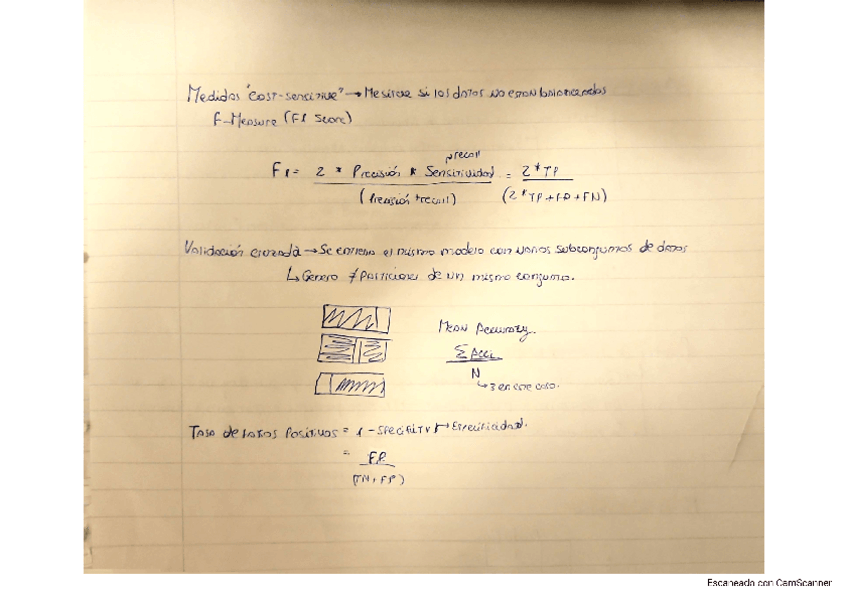 Medidas "cost-sensitive" → Me sirve si los datos no estan balanceados
F-Measure (F1 Score)
recall
F1 = 2 * Precisión * Sensitividad = 2*TP
(Precisión + recall) (2*TP + FP + FN)
Validación cruzada → Se entrena el mismo modelo con varios subconjuntos de datos
↳ Genero ≠ particiones de un mismo conjunto.
Mean Accuracy
Σ Acci
N
↳ 3 en este caso.
Tasa de falsos positivos = 1 - Specifity ↦ Especificidad.
= FP
(TN + FP)
Escaneado con CamScanner